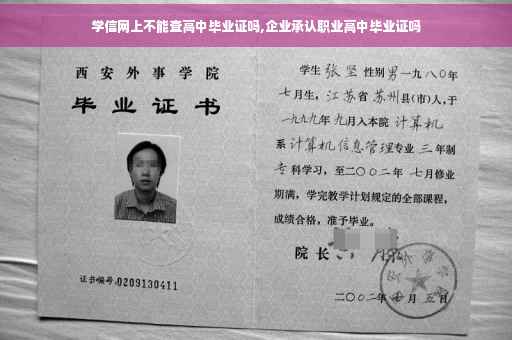 学信网上不能查高中毕业证吗,企业承认职业高中毕业证吗
西安外事学院
毕业证书
证书编号:0209130411
学生 张坚 性别 男 一九八〇年
七月生, 江苏省 苏州县(市)人,于
一九九九年 九月入本院 计算机
系 计算机信息管理专业 三 年制
专 科学习, 至二〇〇二年 七月修业
期满, 学完教学计划规定的全部课程,
成绩合格, 准予毕业。
院 长
二〇〇二年 月 五日